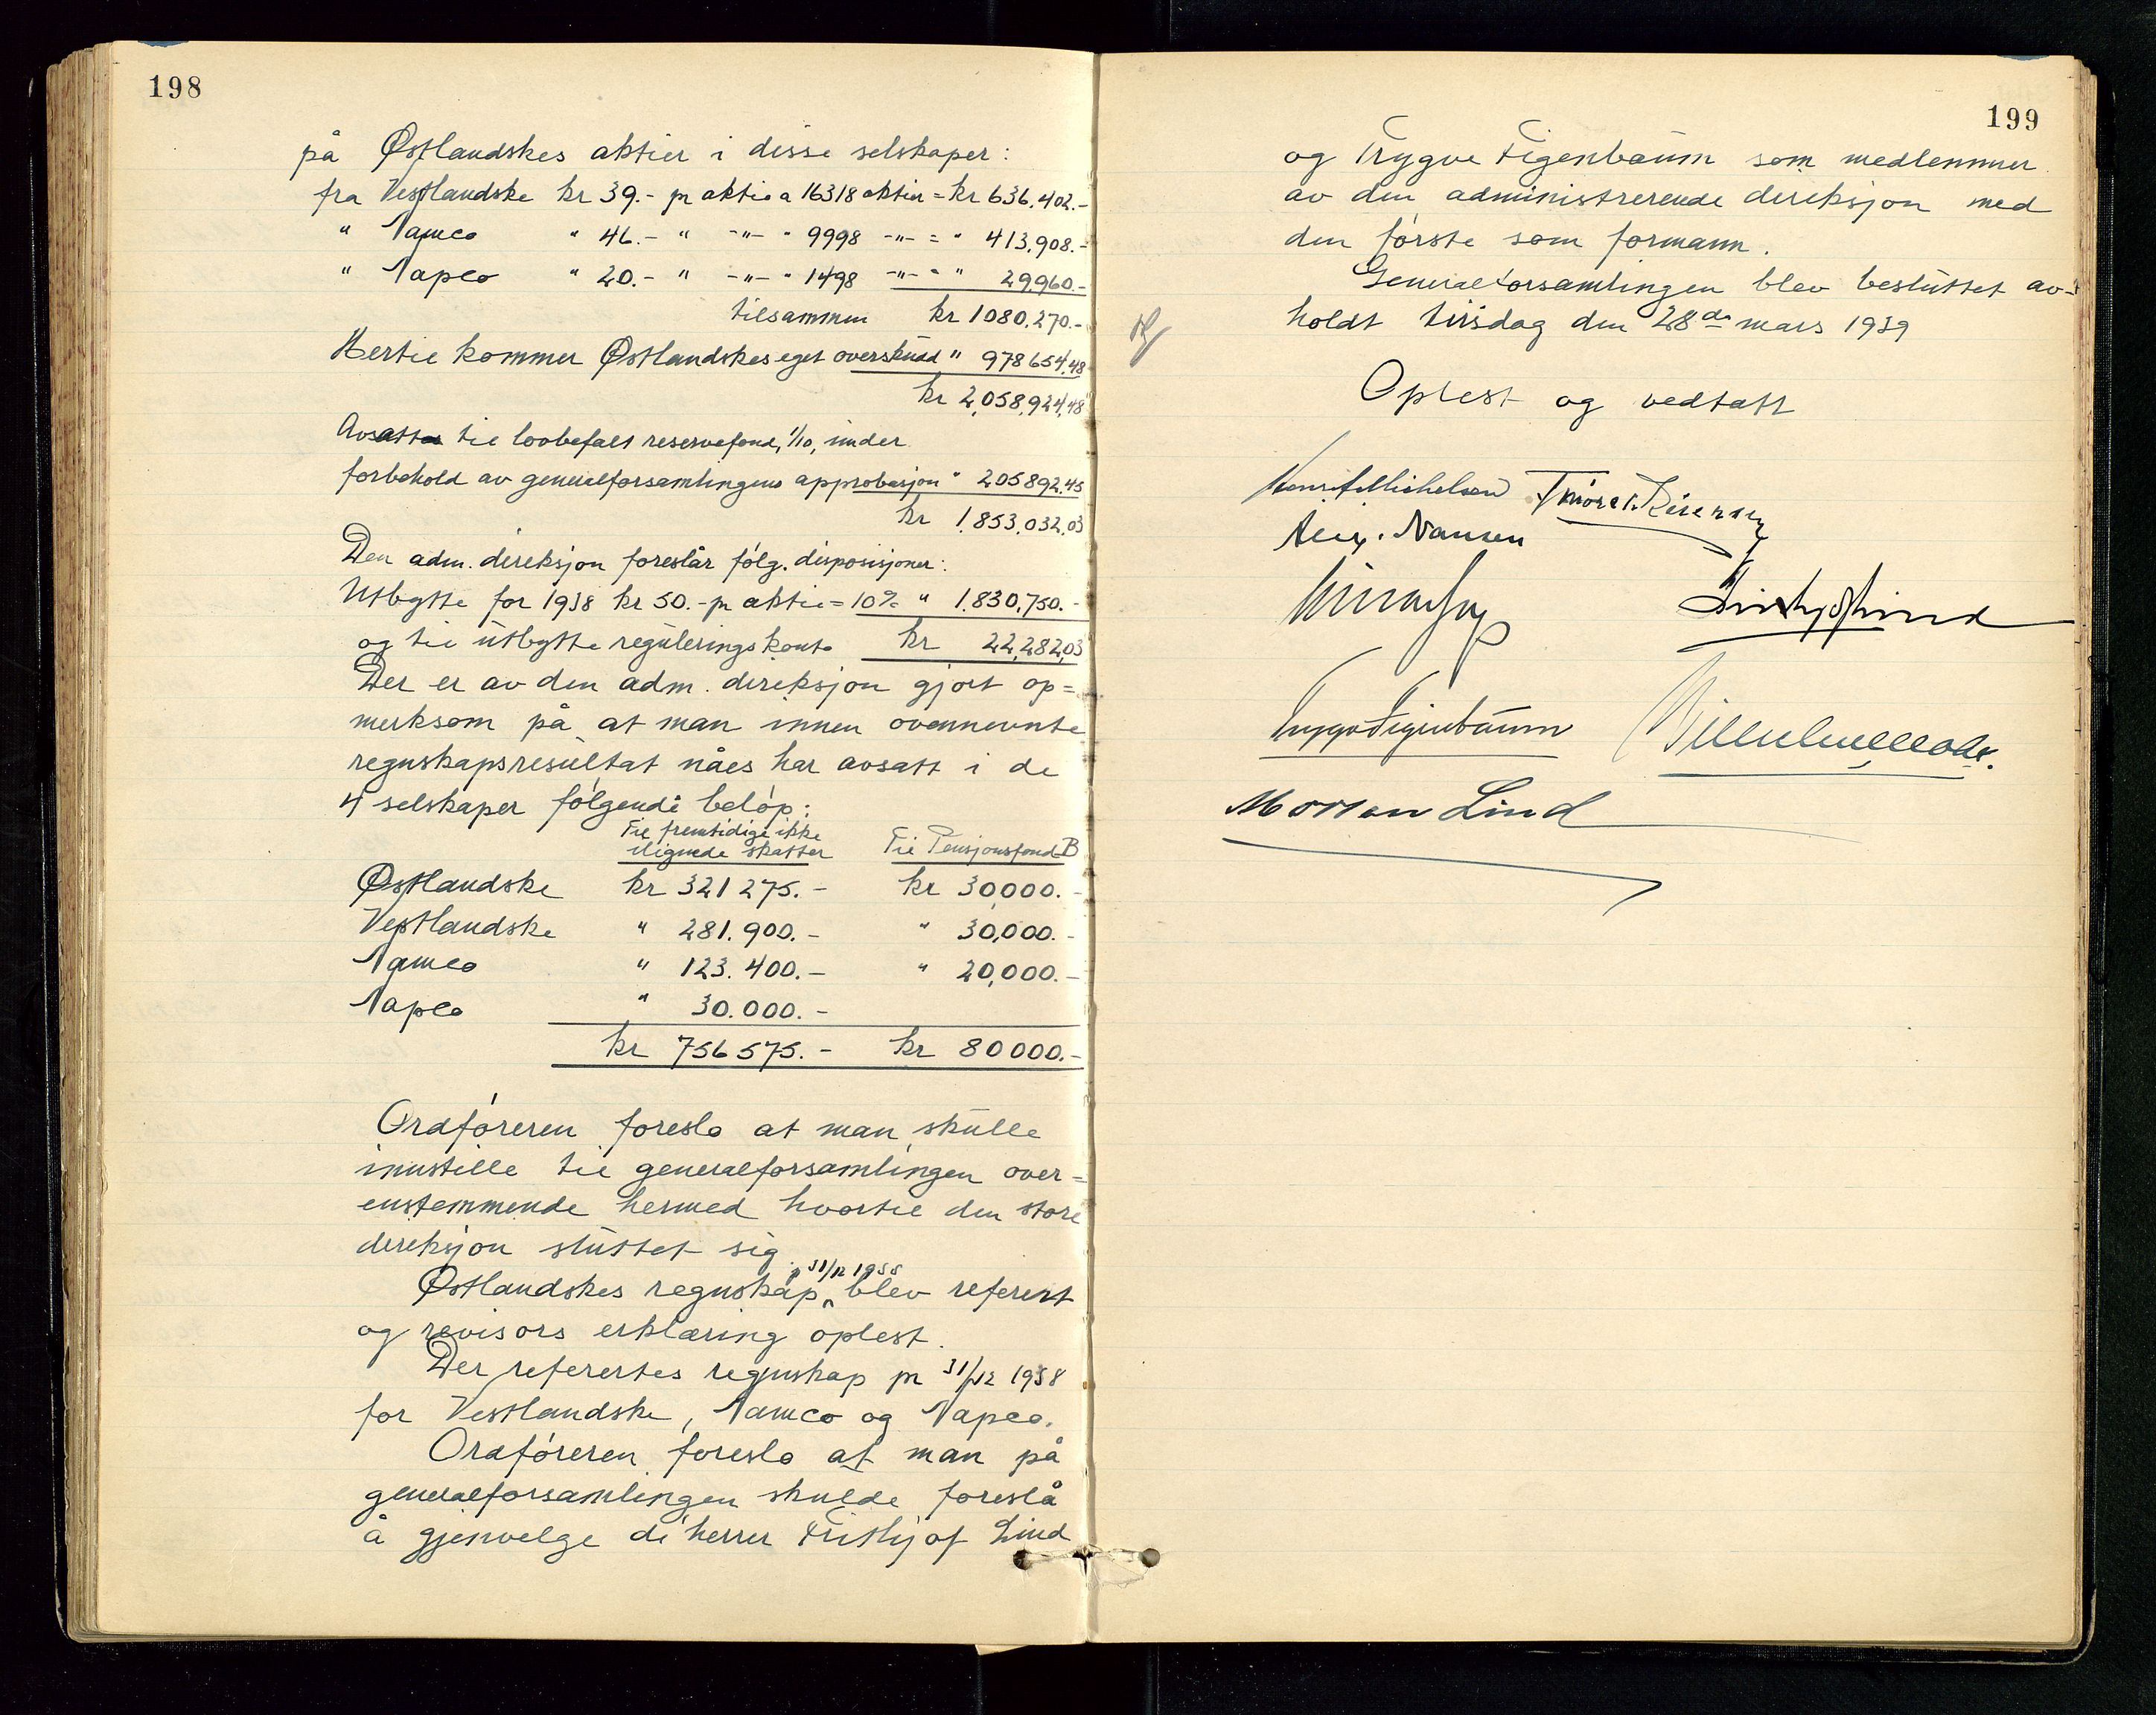 198
på Østlandskes aktier i disse selskaper:
fra Vestlandske kr 39.- pr aktie a 16318 aktier = kr 636,402.-
" Namco " 46.- " -"- " 9998 -"- = " 413,908.-
" Napco " 20.- " -"- " 1498 -"- = " 29,960.-
tilsammen kr 1080,270.-
Hertil kommer Østlandskes eget overskudd " 978654,48
kr 2,058,924,48
Avsatt til lovbefalt reservefond, 1/10, under
forbehold av generalforsamlingens approbasjon " 205892,45
kr 1,853,032,03
Den adm. direksjon foreslår følg. disposisjoner:
Utbytte for 1938 kr 50.- pr aktie = 10% " 1,830,750.-
og til utbytte reguleringskonto kr 22,282,03
Der er av den adm. direksjon gjort op=
merksom på at man innen ovennevnte
regnskapsresultat nåes har avsatt i de
4 selskaper følgende beløp:
Til fremtidige ikke
ilignede skatter Til Pensjonsfond B
Østlandske kr 321275.- kr 30,000.-
Vestlandske " 281.900.- " 30,000.-
Namco " 123.400.- " 20,000.-
Napco " 30.000.-
kr 756575.- kr 80000.-
Ordføreren foreslo at man skulle
innstille til generalforsamlingen over=
enstemmende hermed hvortil den store
direksjon sluttet sig.
pr 31/12 1938
Østlandskes regnskap blev referert
og revisors erklæring oplest.
Der refertes regnskap pr 31/12 1938
for Vestlandske, Namco og Napco.
Ordføreren foreslo at man på
generalforsamlingen skulde foreslå
å gjenvelge de herrer Frithjof Lind
199
og Trygve Figenbaum som medlemmer
av den administrerende direksjon med
den første som formann.
Generalforsamlingen blev besluttet av-
holdt tirsdag den 28de mars 1939
Oplest og vedtatt
Henrik Michelsen
Alex. Nansen
Frithjof Lind
Trygve Figenbaum
Morten Lind